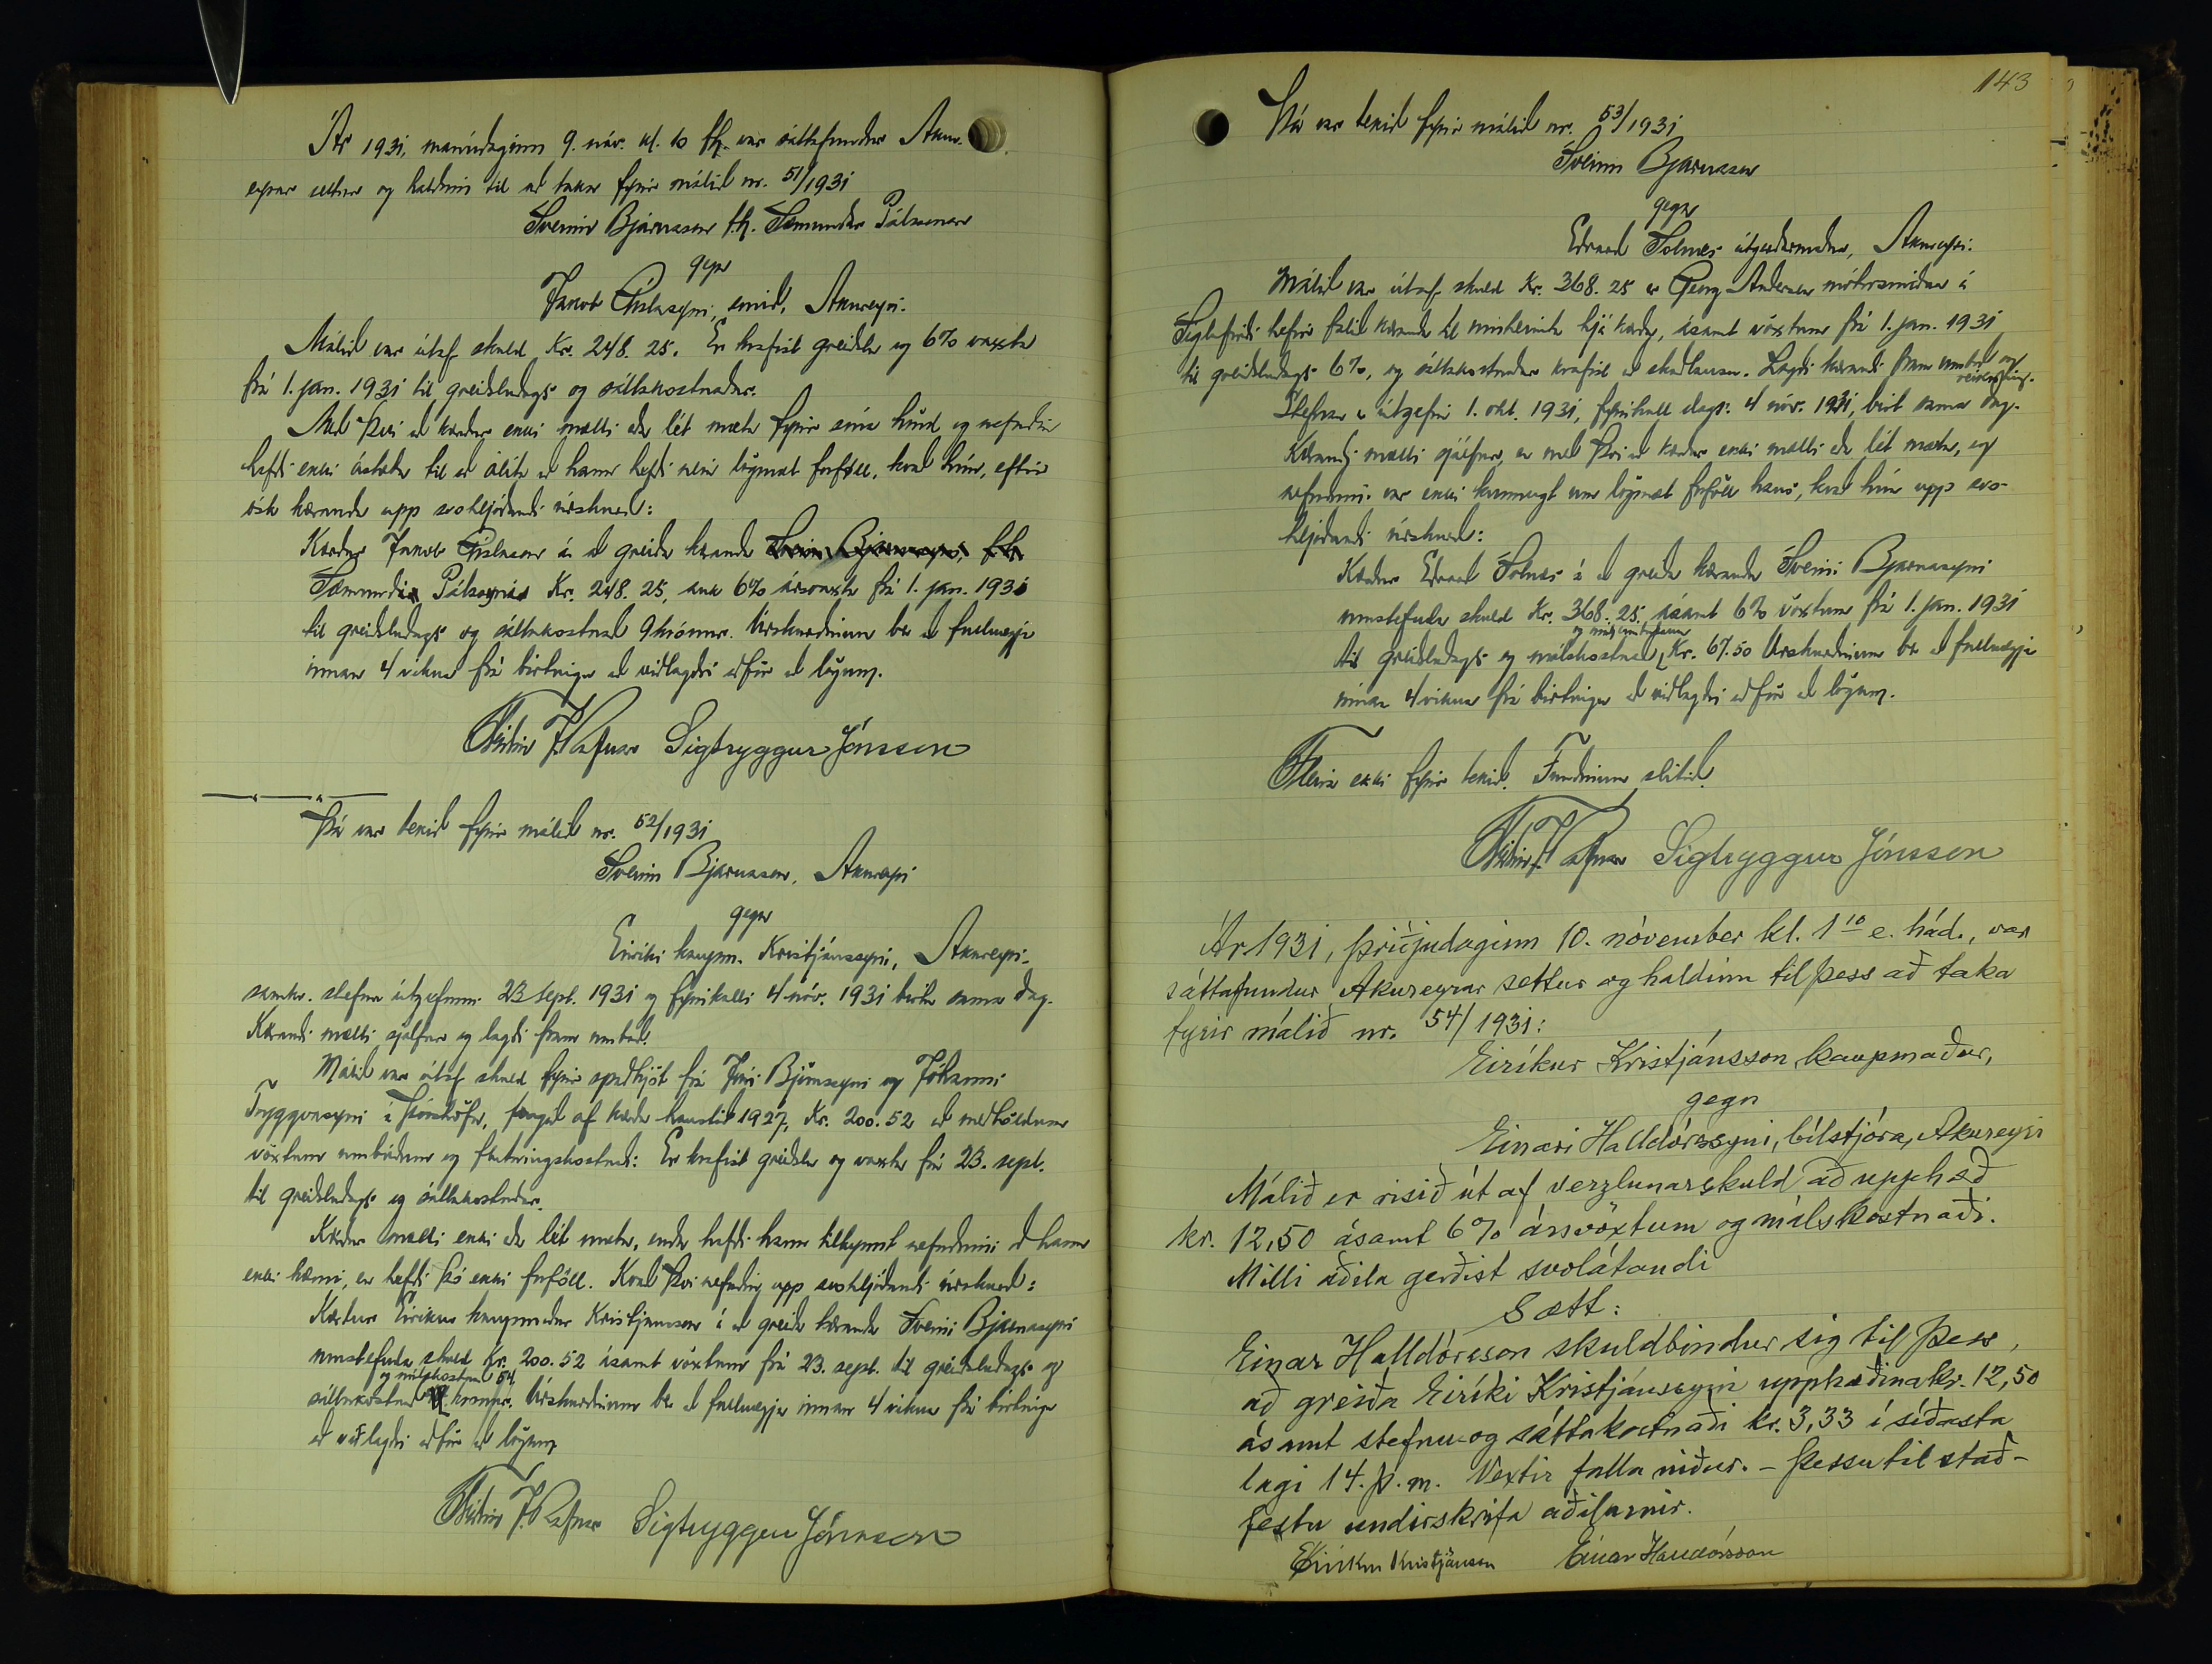 Ár 1931, mánudaginn 9. nóv. kl. 10 fh. var sáttafundur Akur-
eyrar settur og haldinn til að taka fyrir málið nr. 51/1931
Sveinn Bjarnason f.h. Sæmundar Pálssonar
gegn
Jakob Gíslasyni, smið, Akureyri.
Málið var útaf skuld Kr. 248.25. Er krafist greiðslu og 6% vaxta
frá 1. jan. 1931 til greiðsludags og sáttakostnaðar.
Með því að kærður ekki mætti eða lét mæta fyrir sína hönd og nefndin
hafði ekki ástæðu til að álíta að hann hefði nein lögmæt forföll, kvað hún, eftir
ósk kæranda upp svohljóðandi úrskurð:
Kærður Jakob Gíslason á að greiða kæranda Sveini Bjarnasyni, f.h.
Sæmundi Pálssyni Kr. 248.25, auk 6% ársvaxta frá 1. jan. 1931
til greiðsludags og sáttakostnað 9 krónur. Úrskurðinum ber að fullnægja
innan 4 vikna frá birtingu að viðlagðri aðför að lögum.
J. Rafnar Sigtryggur Jónsson
Þá var tekið fyrir málið nr. 52/1931
Sveinn Bjarnason, Akureyri
gegn
Eiríki kaupm. Kristjánssyni, Akureyri.
samkv. stefnu útgefinni 23 sept. 1931 og fyrirkalli 4 nóv. 1931 birtu sama dag.
Kærandi mætti sjálfur og lagði fram umboð.
Málið var útaf skuld fyrir spaðkjöt frá Jóni Björnssyni og Jóhanni
Tryggvasyni í Þórshöfn, fengið af kærða haustið 1927, Kr. 200.52 að meðtöldum
vöxtum umbúðum og flutningskostnað: Er krafist greiðslu og vaxta frá 23. sept.
til greiðsludags og sáttakostnaðar.
Kærður mætti ekki eða lét mæta, enda hafði hann tilkynnt nefndinni að hann
ekki kæmi, en hefði þó ekki forföll. Kvað því nefndin upp svohljóðandi úrskurð:
Kærður Eiríkur kaupmaður Kristjánsson á að greiða kæranda Sveini Bjarnasyni
umstefnda skuld Kr. 200.52 ásamt vöxtum frá 23. sept. til greiðsludags og
og málskostnað 54
sáttakostnað krónur. Úrskurðinum ber að fullnægja innan 4 vikna frá birtingu
að viðlagðri aðför að lögum
J. Rafnar Sigtryggur Jónsson
143
Þá var tekið fyrir málið nr. 53/1931
Sveinn Bjarnason
gegn
Edvard Sólnes útgerðarmaður, Akureyri.
Málið var útaf skuld Kr. 368.25 er Georg Andersen mótorsmiður á
Siglufirði hefir falið kæranda til innheimtu hjá kærða, ásamt vöxtum frá 1. jan. 1931
til greiðsludags 6%, og sáttakostnaðar krafist að skaðlausu. Lagði kærandi fram umboð og
reikning.
Stefnan er útgefin 1. okt. 1931, fyrirkall dags. 4 nóv. 1931, birt sama dag.
Kærandi mætti sjálfur, en með því að kærður ekki mætti eða lét mæta, og
nefndinni var ekki kunnugt um lögmæt forföll hans, kvað hún upp svo-
hljóðandi úrskurð:
Kærður Edvard Sólnes á að greiða kæranda Sveini Bjarnasyni
umstefnda skuld Kr. 368.25, ásamt 6% vöxtum frá 1. jan. 1931
til greiðsludags og málskostnað Kr. 67.50 Úrskurðinum ber að fullnægja
innan 4 vikna frá birtingu að viðlagðri aðför að lögum.
Fleira ekki fyrir tekið. Fundinum slitið.
J. Rafnar Sigtryggur Jónsson
Ár 1931, þriðjudaginn 10. nóvember kl. 1 10 e. hád., var
sáttafundur Akureyrar settur og haldinn til þess að taka
fyrir málið nr. 54/1931:
Eiríkur Kristjánsson, kaupmaður,
gegn
Einari Halldórssyni, bílstjóra, Akureyri
Málið er risið út af verzlunarskuld að upphæð
kr. 12,50 ásamt 6% ársvöxtum og málskostnaði.
Milli aðila gerðist svolátandi
Sætt:
Einar Halldórsson skuldbindur sig til þess,
að greiða Eiríki Kristjánssyni upphæðina kr. 12,50
ásamt stefnu- og sáttakostnaði kr. 3,33 í síðasta
lagi 14. þ. m. Vextir falla niður. - Þessu til stað-
festu undirskrifa aðilarnir.
Eiríkur Kristjánsson Einar Halldórsson